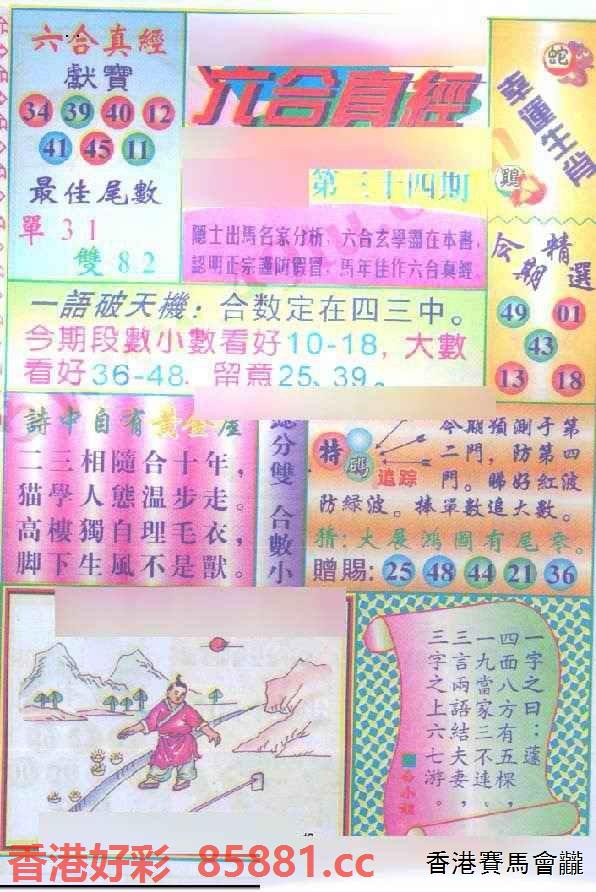 六合真經
獻寶
34 39 40 12
41 45 11
最佳尾數
單 3 1
雙 8 2
六合真經
第三十四期
隱士出馬名家分析，六合玄學盡在本書，
認明正宗謹防假冒，馬年佳作六合真經
蛇
幸運生肖
鷄
今期
精選
49 01
43
13 18
一語破天機：合数定在四三中。
今期段數小數看好10-18，大數
看好36-48，留意25、39。
詩中自有黃金屋
二三相隨合十年，
猫學人態溫步走。
高樓獨自理毛衣，
脚下生風不是獸。
分雙 合數小
特碼
追踪
今期預測于第
二門，防第四
門。睇好紅波
防綠波。棒單數追大數。
猜：大展鴻圖有尾零。
贈賜：25 48 44 21 36
一字之曰：蓬
四面八方有五棵，
一九當家三不連。
三言兩語結夫妻，
三字之上六七游。
香港好彩 85881.cc
香港賽馬會